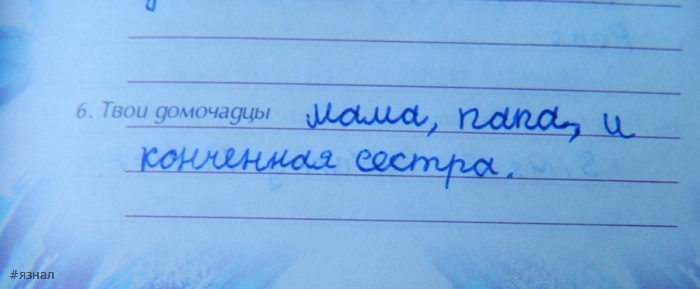 6. Твои домочадцы мама, папа, и
конченная сестра.
#язнал